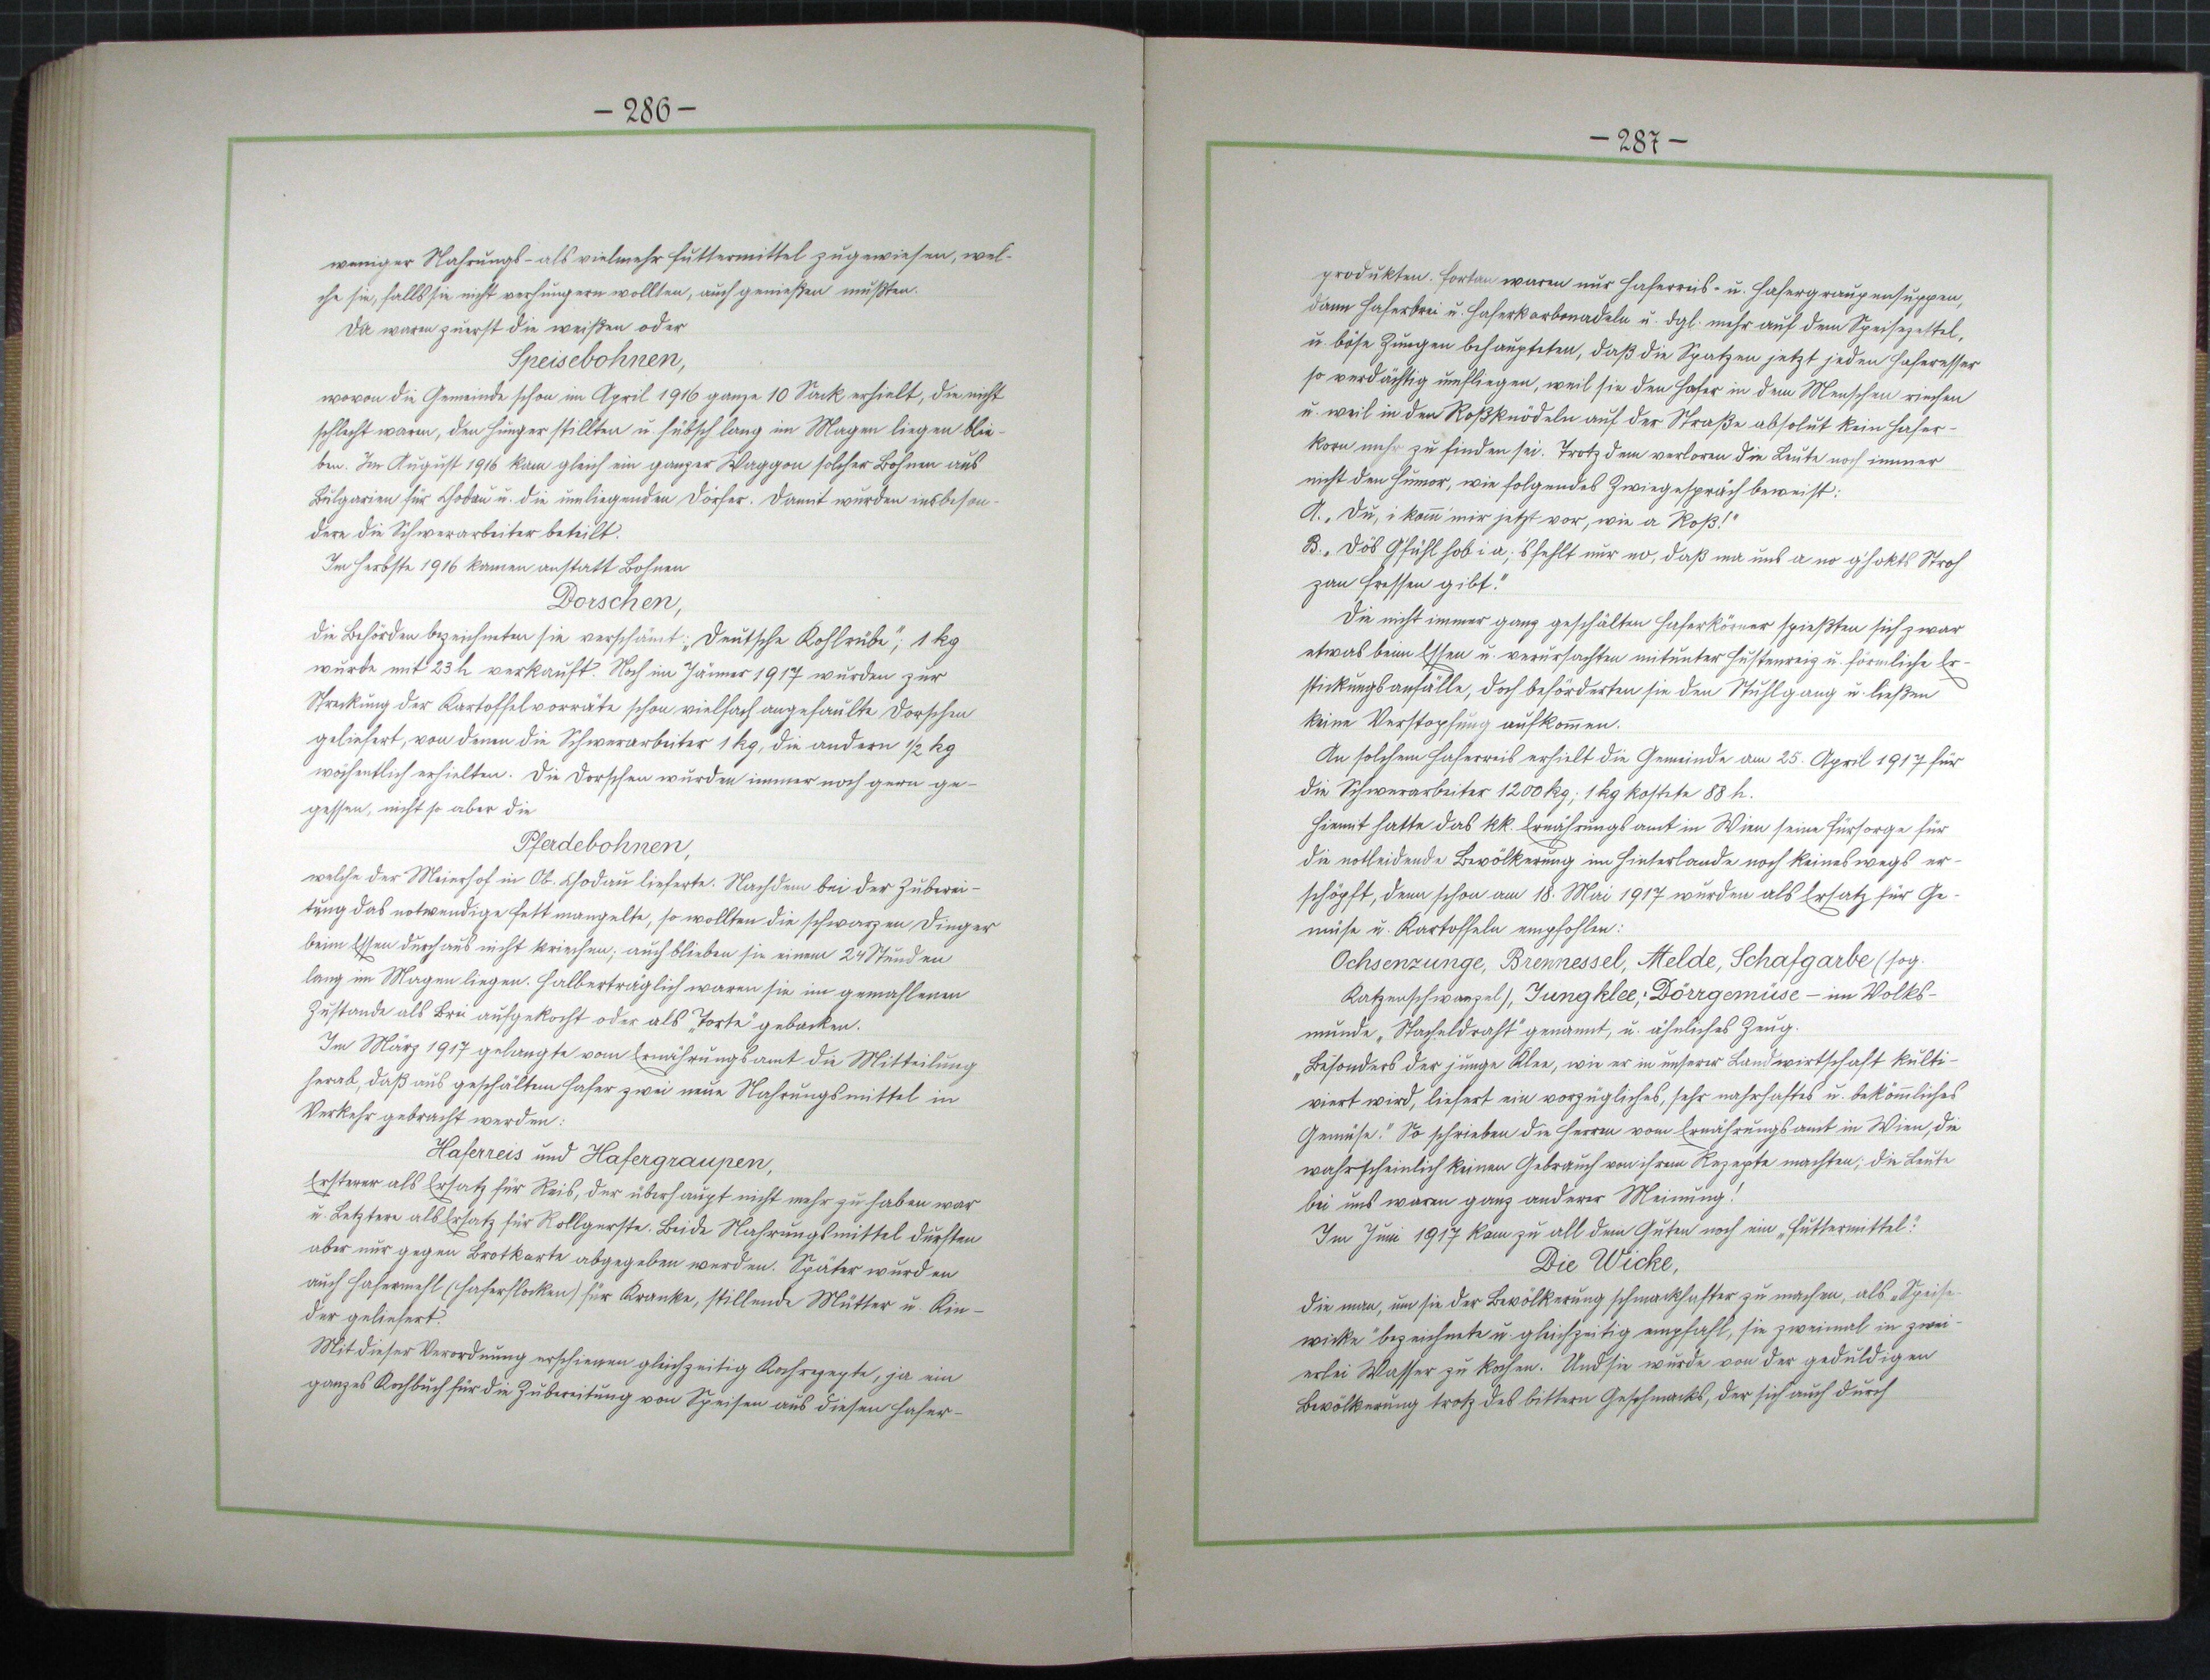 - 286 -
weniger Nahrungs- als vielmehr Futtermittel zugewiesen, wel-
che sie, falls sie nicht verhungern wollten, auch genießen mußten.
Da waren zuerst die weißen oder
Speisebohnen,
wovon die Gemeinde schon im April 1916 ganze 10 Sack erhielt, die nicht
schlecht waren, den Hunger stillten u. hübsch lang im Magen liegen blie-
ben. Im August 1916 kam gleich ein ganzer Waggon solcher Bohnen aus
Bulgarien für Chodau u. die umliegenden Dörfer. Damit wurden insbeson-
dere die Schwerarbeiter beteilt.
Im Herbste 1916 kamen anstatt Bohnen
Dorschen,
die Behörden bezeichneten sie verschämt: „Deutsche Kohlrübe"; 1 kg
wurde mit 23 h verkauft. Noch im Jänner 1917 wurden zur
Streckung der Kartoffelvorräte schon vielfach angefaulte Dorschen
geliefert, von denen die Schwerarbeiter 1 kg, die andern ½ kg
wöchentlich erhielten. Die Dorschen wurden immer noch gern ge-
gessen, nicht so aber die
Pferdebohnen,
welche der Meierhof in Ob. Chodau lieferte. Nachdem bei der Zuberei-
tung das notwendige Fett mangelte, so wollten die schwarzen Dinger
beim Essen durchaus nicht kriechen; auch blieben sie einem 24 Stunden
lang im Magen liegen. Halberträglich waren sie im gemahlenen
Zustande als Brei aufgekocht oder als „Torte" gebacken.
Im März 1917 gelangte vom Ernährungsamt die Mitteilung
herab, daß aus geschältem Hafer zwei neue Nahrungsmittel in
Verkehr gebracht werden:
Haferreis und Hafergraupen,
Ersterer als Ersatz für Reis, der überhaupt nicht mehr zu haben war
u. Letztere als Ersatz für Rollgerste. Beide Nahrungsmittel durften
aber nur gegen Brotkarte abgegeben werden. Später wurden
auch Hafermehl (Haferflocken) für Kranke, stillende Mütter u. Kin-
der geliefert.
Mit dieser Verordnung erschienen gleichzeitig Kochrezepte, ja ein
ganzes Kochbuch für die Zubereitung von Speisen aus diesen Hafer-
- 287 -
produkten. Fortan waren nur Haferreis- u. Hafergraupensuppen,
dann Haferbrei u. Haferkarbonadeln u. dgl. mehr auf dem Speisezettel,
u. böse Zungen behaupteten, daß die Spatzen jetzt jeden Haferesser
so verdächtig umfliegen, weil sie den Hafer in dem Menschen riechen
u. weil in den Roßknödeln auf der Straße absolut kein Hafer-
korn mehr zu finden sei. Trotzdem verloren die Leute noch immer
nicht den Humor, wie folgendes Zwiegespräch beweist:
A. „Du, i kom̄ mir jetzt vor, wie a Roß!"
B. „Dös G'fühl hob i a; s fehlt nur no, daß ma uns a no g'hokts Stroh
zan fressen gibt."
Die nicht immer ganz geschälten Haferkörner spießten sich zwar
etwas beim Essen u. verursachten mitunter Hustenreiz u. förmliche Er-
stickungsanfälle, doch beförderten sie den Stuhlgang u. ließen
keine Verstopfung aufkom̄en.
An solchem Haferreis erhielt die Gemeinde am 25. April 1917 für
die Schwerarbeiter 1200 kg; 1 kg kostete 88 h.
Hiemit hatte das kk. Ernährungsamt in Wien seine Fürsorge für
die notleidende Bevölkerung im Hinterlande noch keineswegs er-
schöpft, denn schon am 18. Mai 1917 wurden als Ersatz für Ge-
müse u. Kartoffeln empfohlen:
Ochsenzunge, Brennessel, Melde, Schafgarbe (sog.
Katzenschwanzel), Jungklee, Dörrgemüse - im Volks-
munde „Stacheldraht" genannt, u. ähnliches Zeug.
„Besonders der junge Klee, wie er in unserer Landwirtschaft kulti-
viert wird, liefert ein vorzügliches, sehr nahrhaftes u. beköm̄liches
Gemüse." So schrieben die Herren vom Ernährungsamt in Wien, die
wahrscheinlich keinen Gebrauch von ihrem Rezepte machten; die Leute
bei uns waren ganz anderer Meinung!
Im Juni 1917 kam zu all dem Guten noch ein „Futtermittel":
Die Wicke,
die man, um sie der Bevölkerung schmackhafter zu machen, als „Speise-
wicke" bezeichnete u. gleichzeitig empfahl, sie zweimal in zwei-
erlei Wasser zu kochen. Und sie wurde von der geduldigen
Bevölkerung trotz des bittern Geschmacks, der sich auch durch